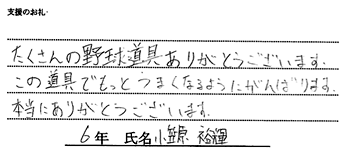 支援のお礼
たくさんの野球道具ありがとうございます.
この道具でもっとうまくなるようにがんばります.
本当にありがとうございます.
6年 氏名 小鯨 裕輝